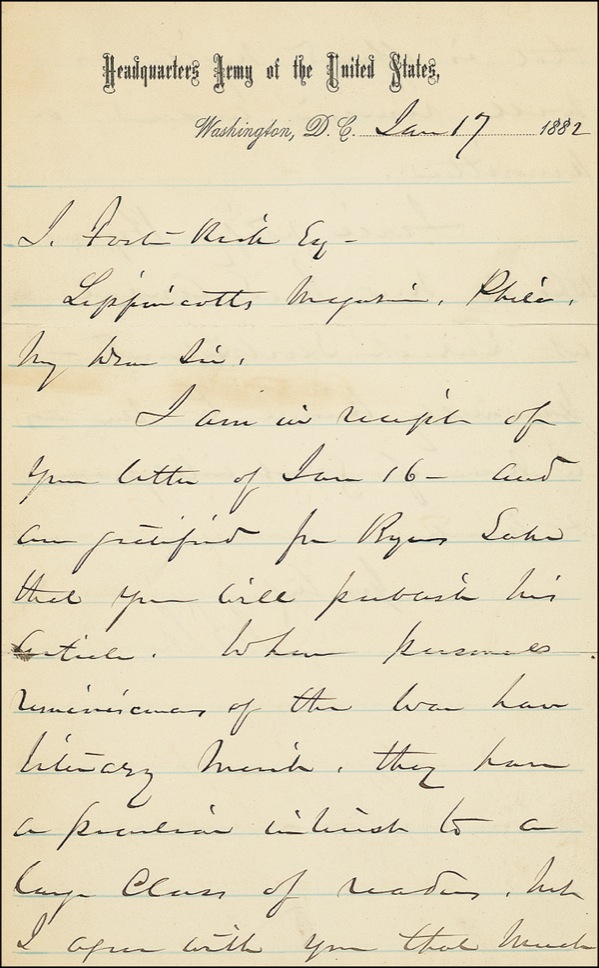 Headquarters Army of the United States,
Washington, D.C. Jan 17 1882
J. Foster Kirk Esq -
Lippincotts Magazine, Phila.
My Dear Sir,
I am in receipt of
your letter of Jan 16 - and
am gratified for Sake
that you will publish his
article. When personal
reminiscences of the War have
literary merit, they have
a peculiar interest to a
large Class of readers, but
I agree with you that much